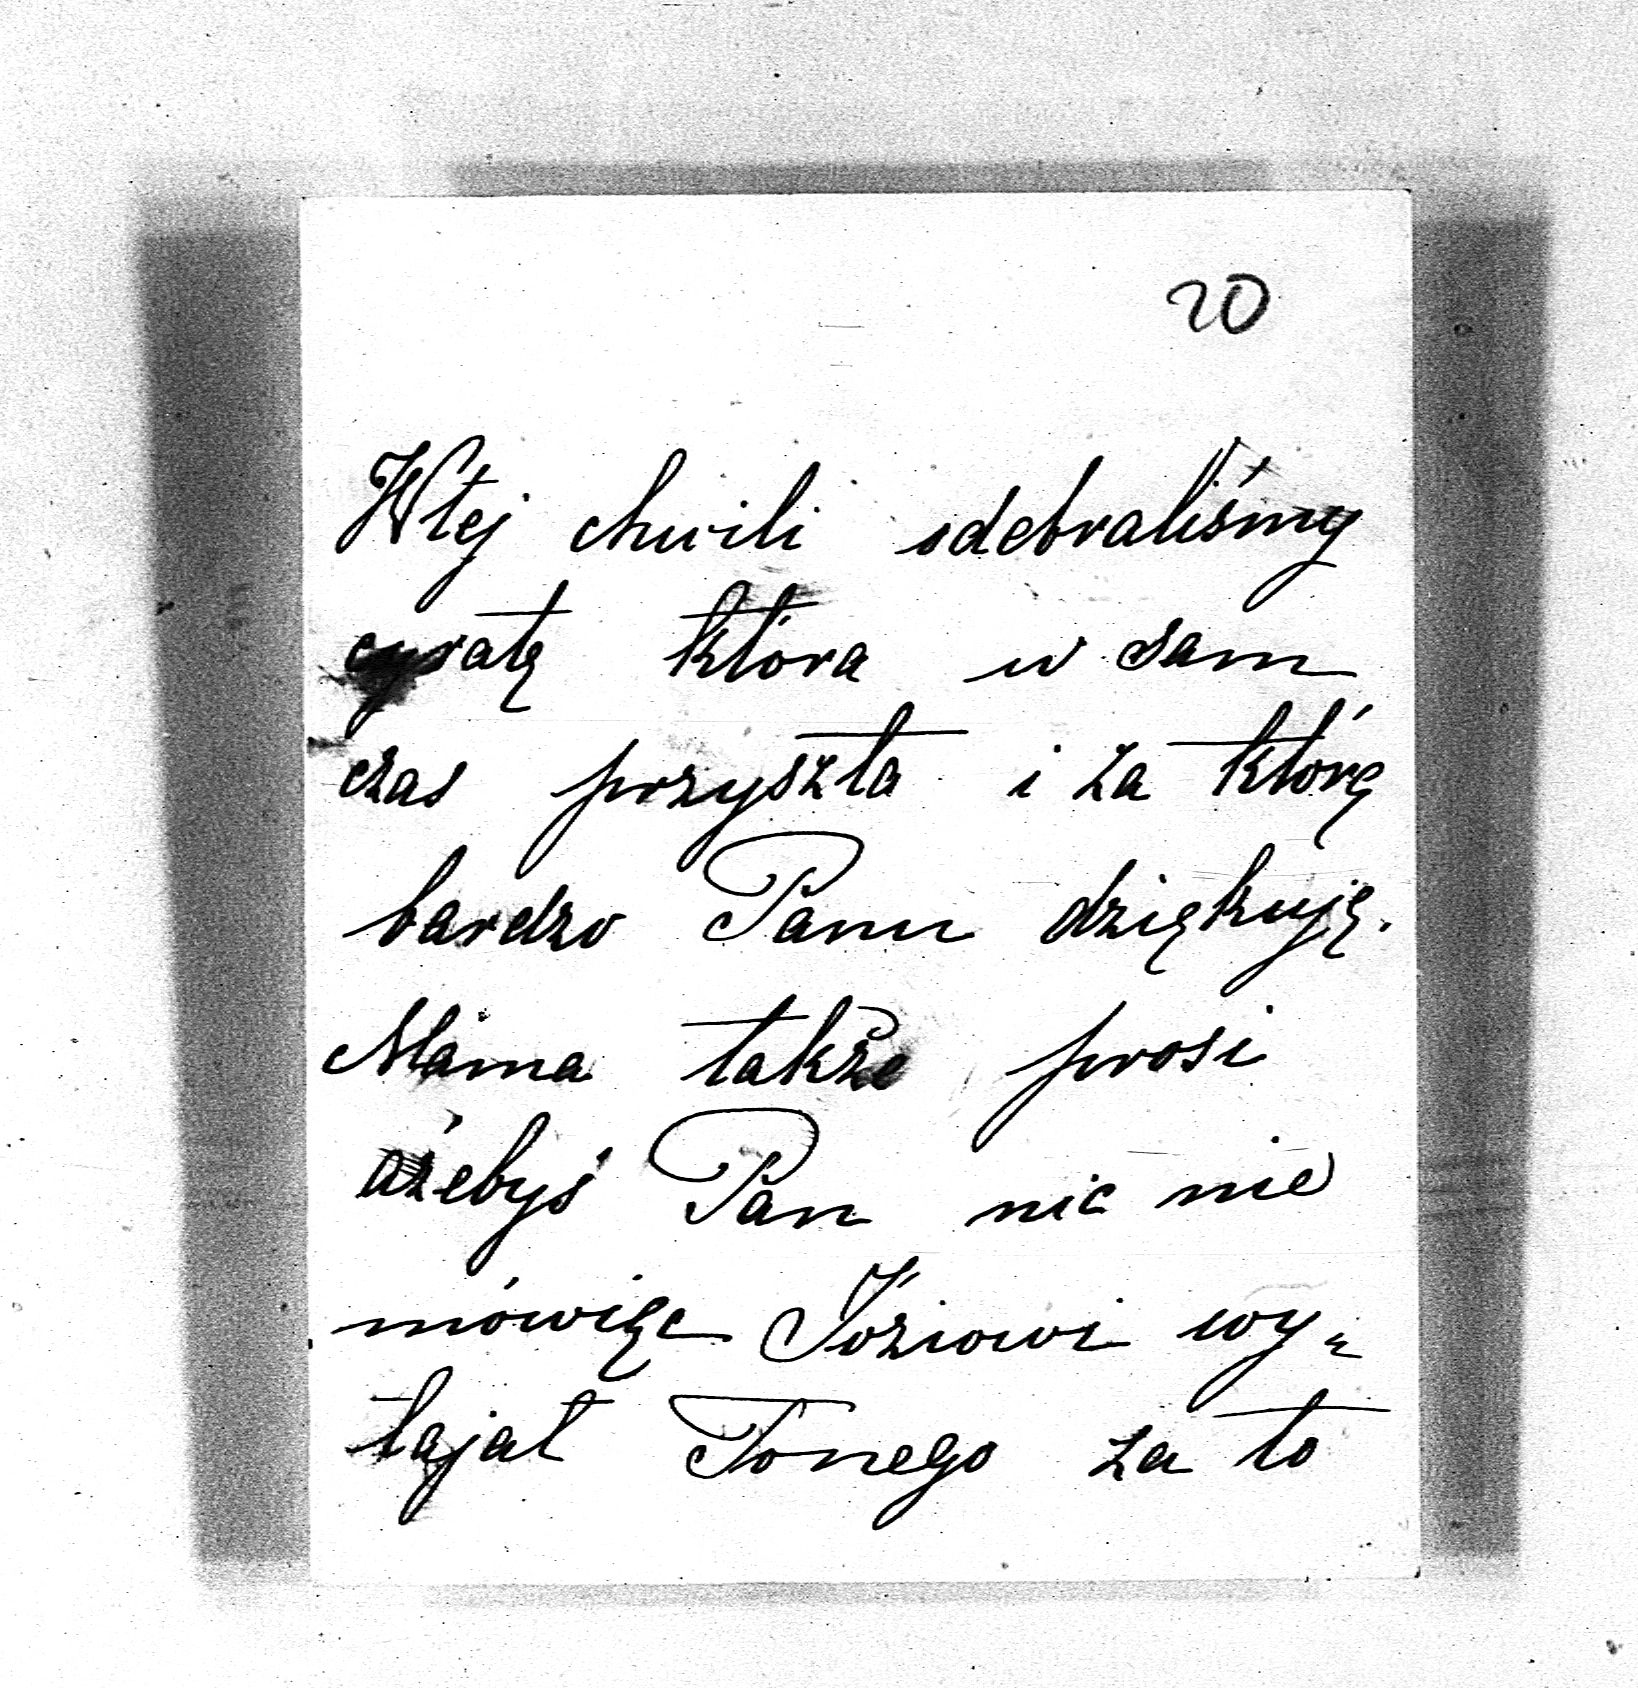 20
Wtej chwili odebraliśmy
cyratę która w sam
czas przyszła i za którę
bardzo Panu dziękuję.
Mama także prosi
ażebyś Pan nic nie
mówięc Józiowi wy„
łajał Tonego za to